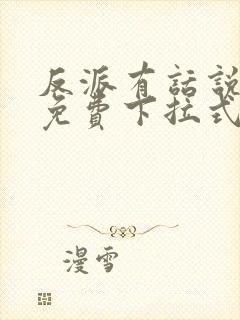 反派有話說
免費下拉式
漫雪